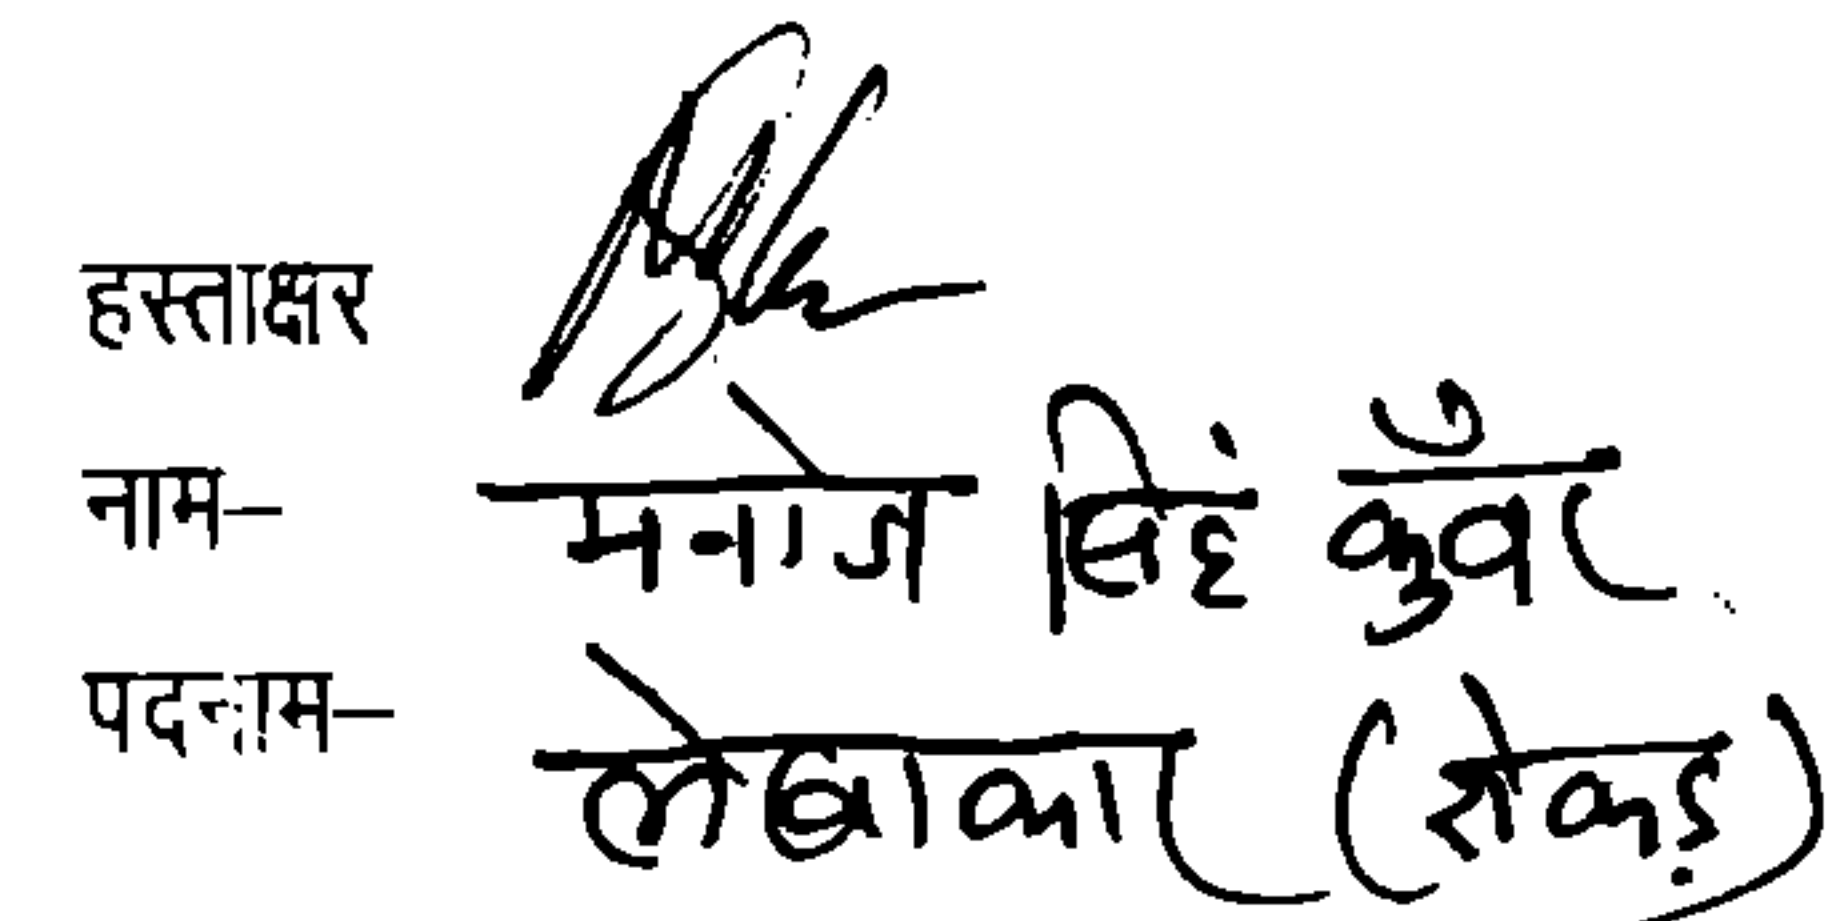 हस्ताक्षर
नाम– मनोज सिंह कुँवर
पदनाम– लेखाकार (रोकड़)